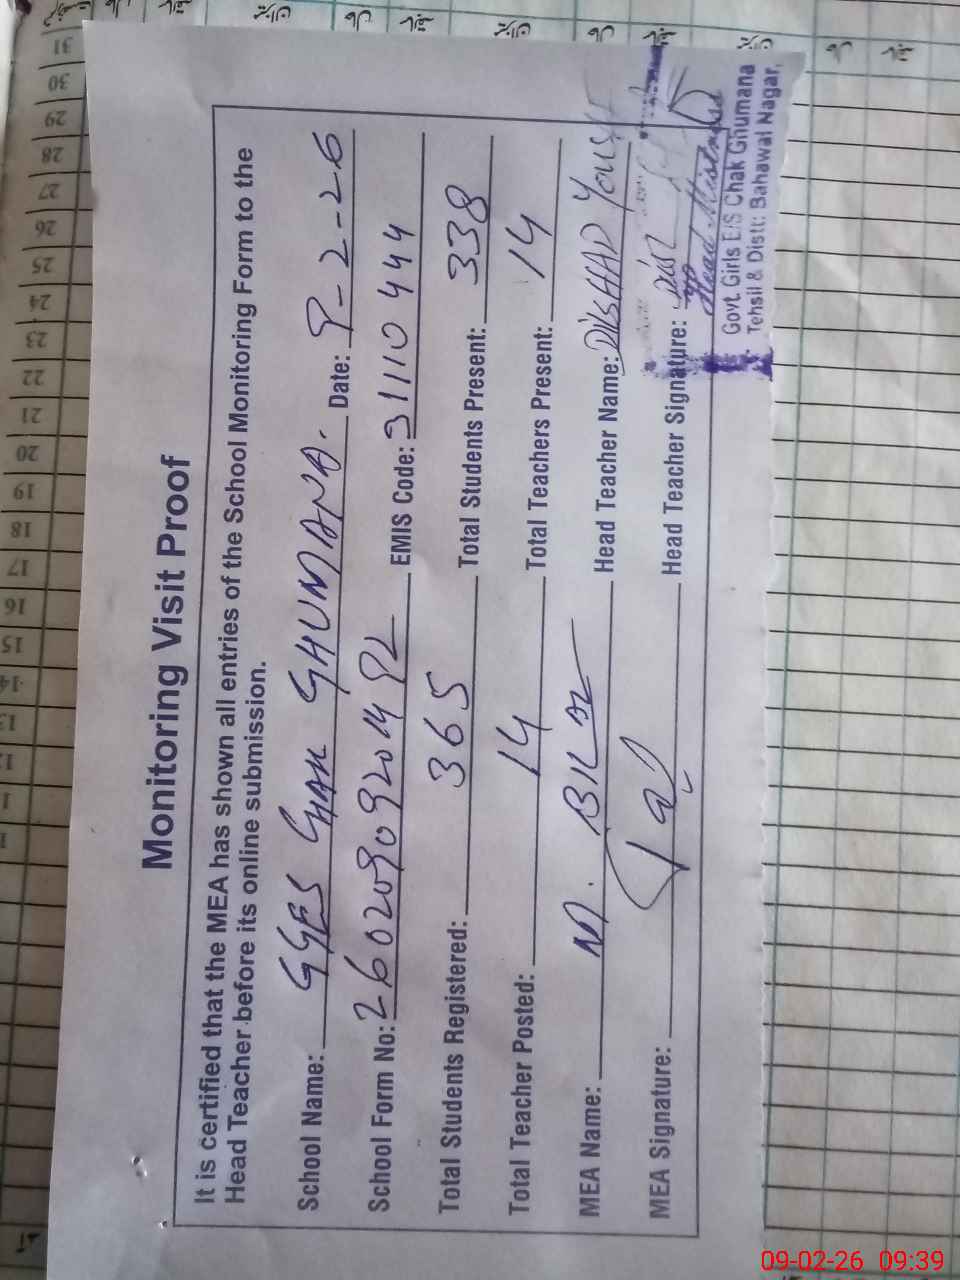 Monitoring Visit Proof
It is certified that the MEA has shown all entries of the School Monitoring Form to the
Head Teacher before its online submission.
School Name: GGES CHAK GHUMANA. Date: 9-2-26
School Form No: EMIS Code: 31110444
Total Students Registered: 365 Total Students Present: 338
Total Teacher Posted: 14 Total Teachers Present: 14
MEA Name: M. Head Teacher Name: DILSHAD
MEA Signature: Head Teacher Signature:
Head Mistress
Govt. Girls E/S Chak Ghumana
Tehsil & Distt: Bahawal Nagar.
31
30
29
28
27
26
25
24
23
22
21
20
19
18
17
16
15
14
09-02-26 09:39